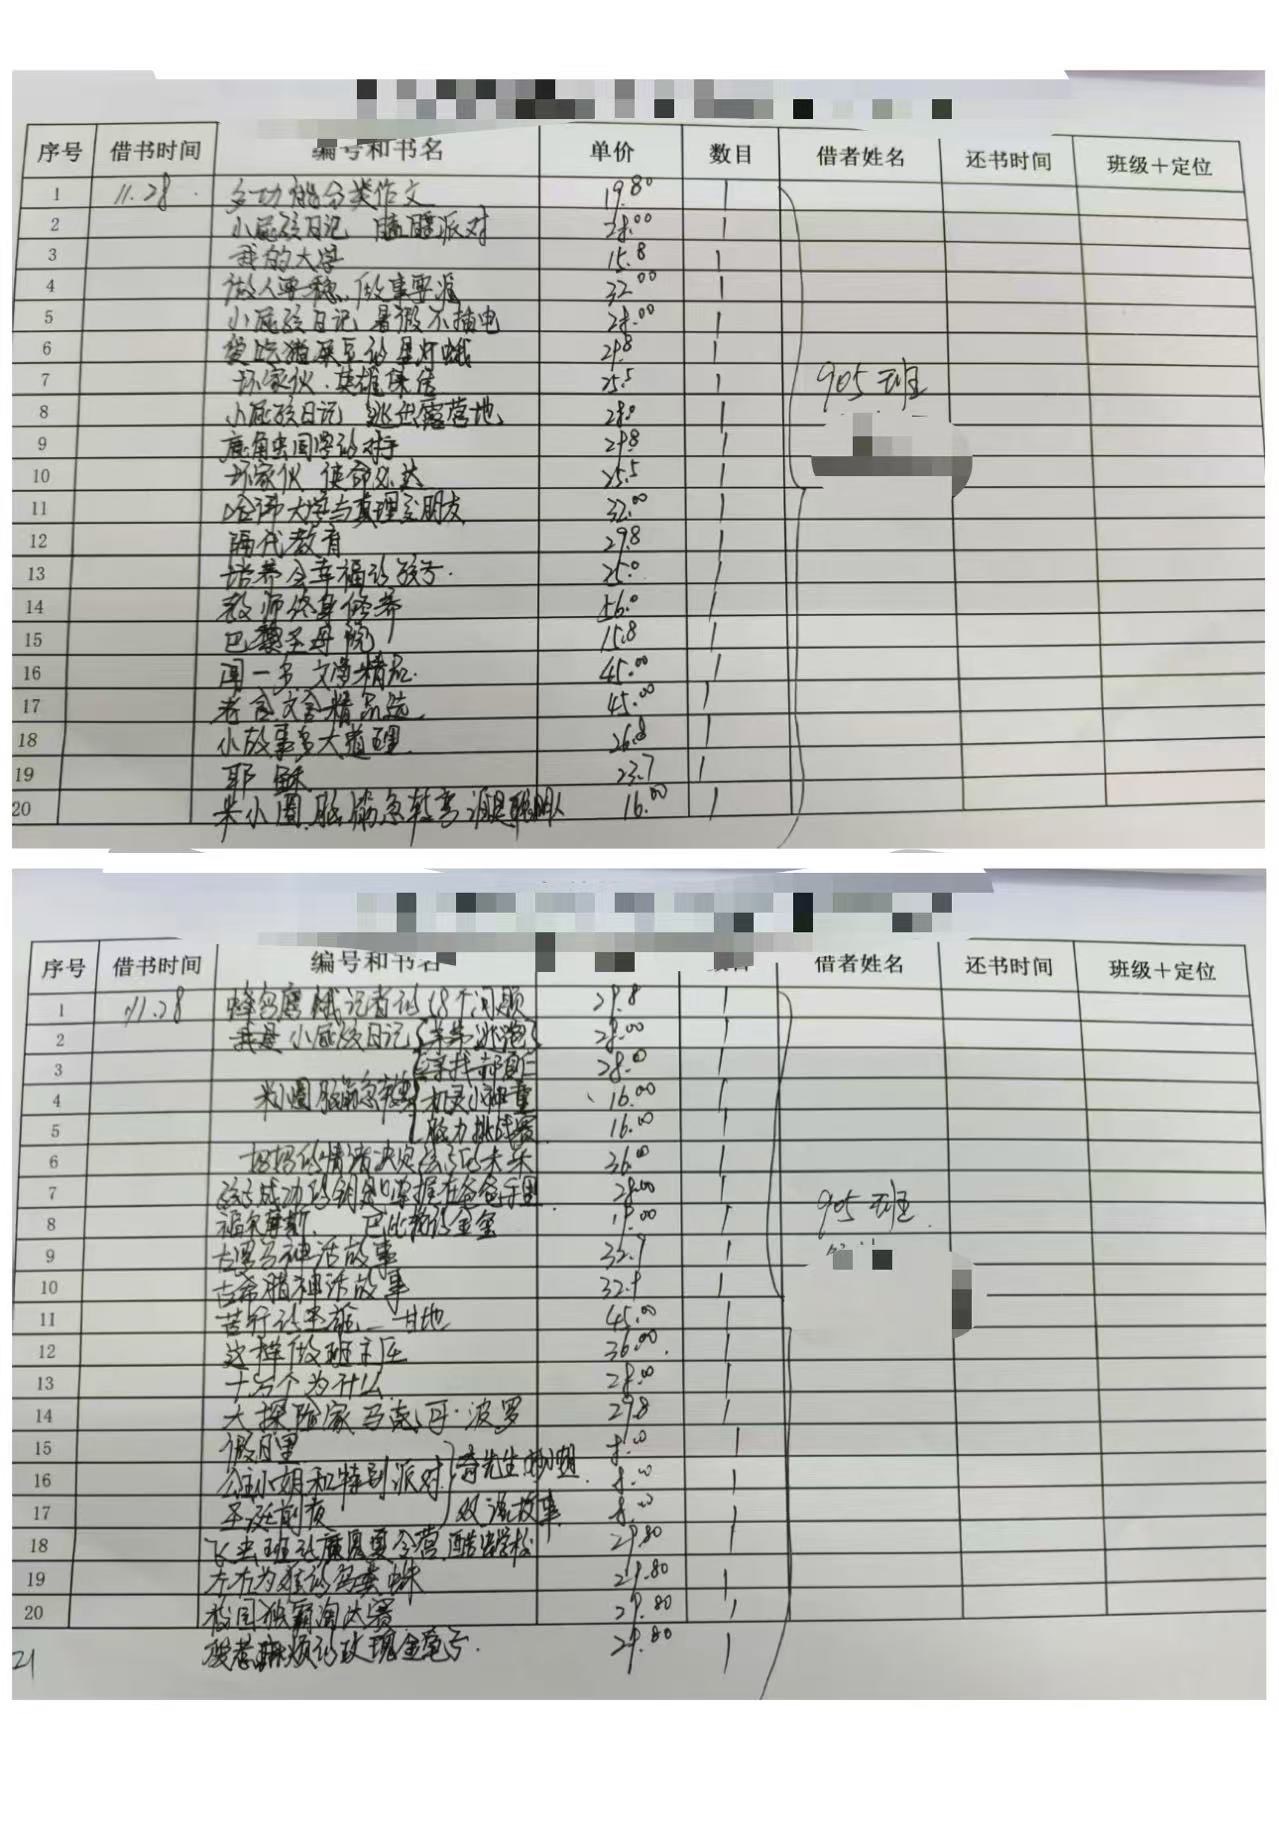 序号 借书时间 编号和书名 单价 数目 借者姓名 还书时间 班级+定位
1 11.28 多功能分类作文 19.80 1
2 小屁孩日记 瞌睡派对 28.00 1
3 我的大学 15.8 1
4 做人要稳 做事要准 32.00 1
5 小屁孩日记 暑假不插电 28.00 1
6 爱吃猪屎豆的星灯蛾 29.8 1
7 坏家伙·英雄集结 25.5 1
8 小屁孩日记 逃出露营地 28.0 1
9 鹿角虫国学的对手 29.8 1
10 坏家伙 使命必达 25.5 1
11 哈佛大学与真理交朋友 32.00 1
12 隔代教育 29.8 1
13 培养会幸福的孩子 25.0 1
14 教师终身修养 56.0 1
15 巴黎圣母院 15.8 1
16 闻一多 文学精品 45.00 1
17 老舍文合精品选 45.00 1
18 小故事多大道理 26.8 1
19 耶稣 23.7 1
20 米小圈脑筋急转弯 谁是聪明人 16.00 1
905班
序号 借书时间 编号和书名 借者姓名 还书时间 班级+定位
1 11.28 蜂鸟鹰蛾记者的18个问题 29.8 1
2 我是小屁孩日记 弟弟逃跑了 28.00 1
3 寻找郝夏仁 28.00 1
4 米小圈脑筋急转弯 机灵小神童 16.00 1
5 脑力挑战赛 16.00 1
6 妈妈的情绪决定孩子的未来 36.00 1
7 孩子成功的钥匙掌握在爸爸手里 28.00 1
8 福尔摩斯 巴比伦的金玺 19.00 1
9 古罗马神话故事 32.9 1
10 古希腊神话故事 32.9 1
11 苦行的圣雄—甘地 45.00 1
12 这样做班主任 36.00 1
13 十万个为什么 28.00 1
14 大探险家马克·波罗 29.8 1
15 假日里 8.00 1
16 公主小姐和特别派对 奇先生妙小姐 8.00 1
17 圣诞前夜 双语故事 8.00 1
18 飞虫班的魔鬼夏令营 酷虫学校 29.80 1
19 左右为难的鸟粪蛛 29.80 1
20 校园独霸淘汰赛 29.80 1
21 爱惹麻烦的玫瑰金龟子 29.80 1
905班